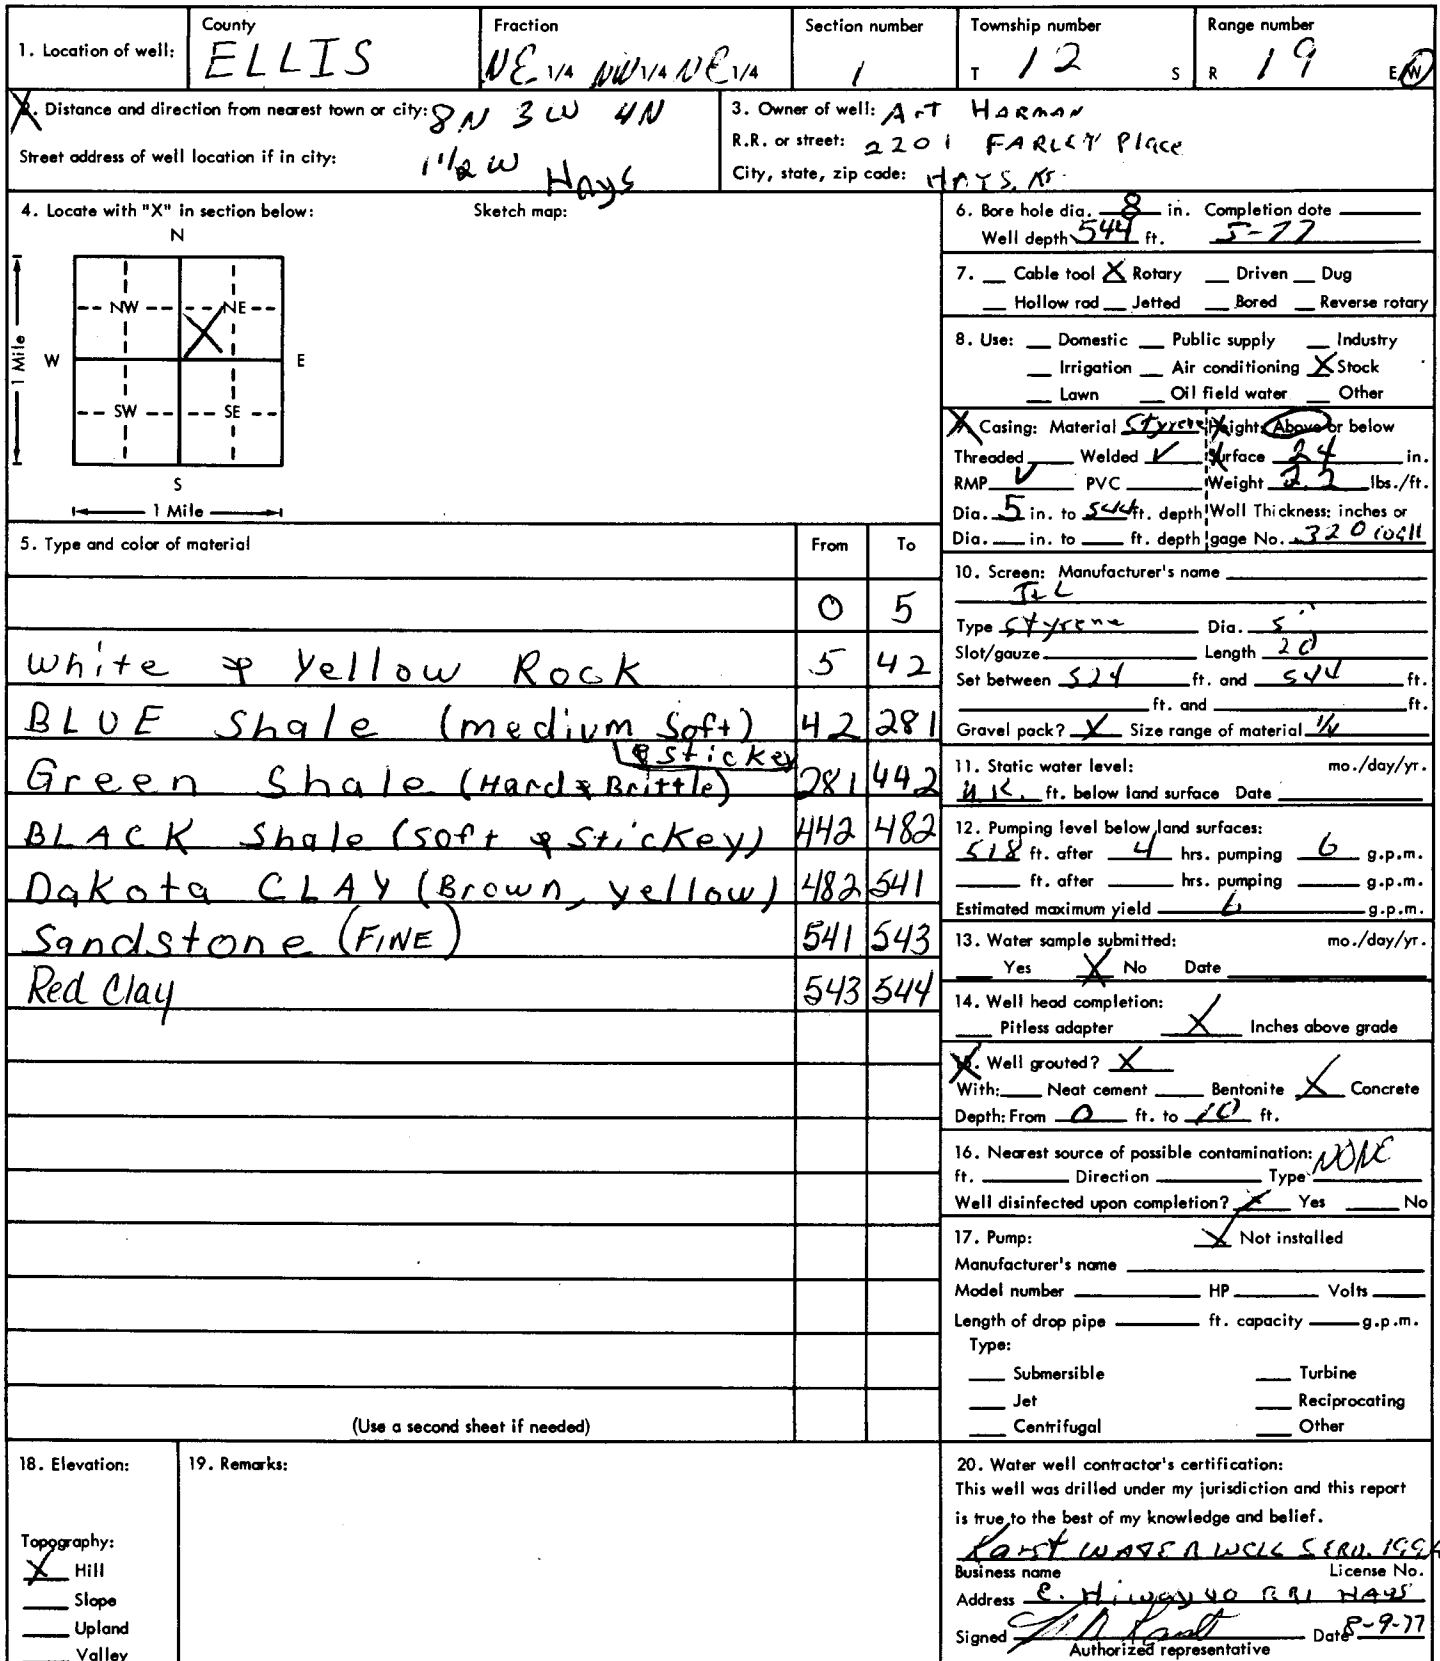 1. Location of well: County ELLIS Fraction NE 1/4 NW 1/4 NE 1/4 Section number 1 Township number T 12 S Range number R 19 E W
2. Distance and direction from nearest town or city: 8N 3W 4N
Street address of well location if in city: 1 1/2 W Hays
3. Owner of well: Art Harman
R.R. or street: 2201 FARLEY Place
City, state, zip code: HAYS, Ks.
4. Locate with "X" in section below: Sketch map:
N
NW NE
W E
1 Mile
SW SE
S
1 Mile
5. Type and color of material From To
0 5
White & Yellow Rock 5 42
BLUE Shale (medium Soft) 42 281
& Stickey
Green Shale (Hard & Brittle) 281 442
BLACK Shale (Soft & Stickey) 442 482
Dakota CLAY (Brown, yellow) 482 541
Sandstone (FINE) 541 543
Red Clay 543 544
(Use a second sheet if needed)
6. Bore hole dia. 8 in. Completion date
Well depth 544 ft. 5-77
7. Cable tool X Rotary Driven Dug
Hollow rod Jetted Bored Reverse rotary
8. Use: Domestic Public supply Industry
Irrigation Air conditioning X Stock
Lawn Oil field water Other
9. Casing: Material Styrene Height: Above or below
Threaded Welded ✓ Surface 24 in.
RMP ✓ PVC Weight 2.2 lbs./ft.
Dia. 5 in. to 544 ft. depth Woll Thickness: inches or
Dia. in. to ft. depth gage No. .320 wall
10. Screen: Manufacturer's name
Type Styrene Dia. 5"
Slot/gauze Length 20
Set between 524 ft. and 544 ft.
ft. and ft.
Gravel pack? X Size range of material 1/4
11. Static water level: mo./day/yr.
U.K. ft. below land surface Date
12. Pumping level below land surfaces:
518 ft. after 4 hrs. pumping 6 g.p.m.
ft. after hrs. pumping g.p.m.
Estimated maximum yield 6 g.p.m.
13. Water sample submitted: mo./day/yr.
Yes X No Date
14. Well head completion:
Pitless adapter X Inches above grade
15. Well grouted? X
With: Neat cement Bentonite X Concrete
Depth: From 0 ft. to 10 ft.
16. Nearest source of possible contamination: NONE
ft. Direction Type
Well disinfected upon completion? X Yes No
17. Pump: X Not installed
Manufacturer's name
Model number HP Volts
Length of drop pipe ft. capacity g.p.m.
Type:
Submersible Turbine
Jet Reciprocating
Centrifugal Other
18. Elevation:
Topography:
X Hill
Slope
Upland
Valley
19. Remarks:
20. Water well contractor's certification:
This well was drilled under my jurisdiction and this report
is true to the best of my knowledge and belief.
Karst WATER WELL SERV. 199A
Business name License No.
Address E. Hiway 40 RR1 HAYS
Signed Karst Date 8-9-77
Authorized representative